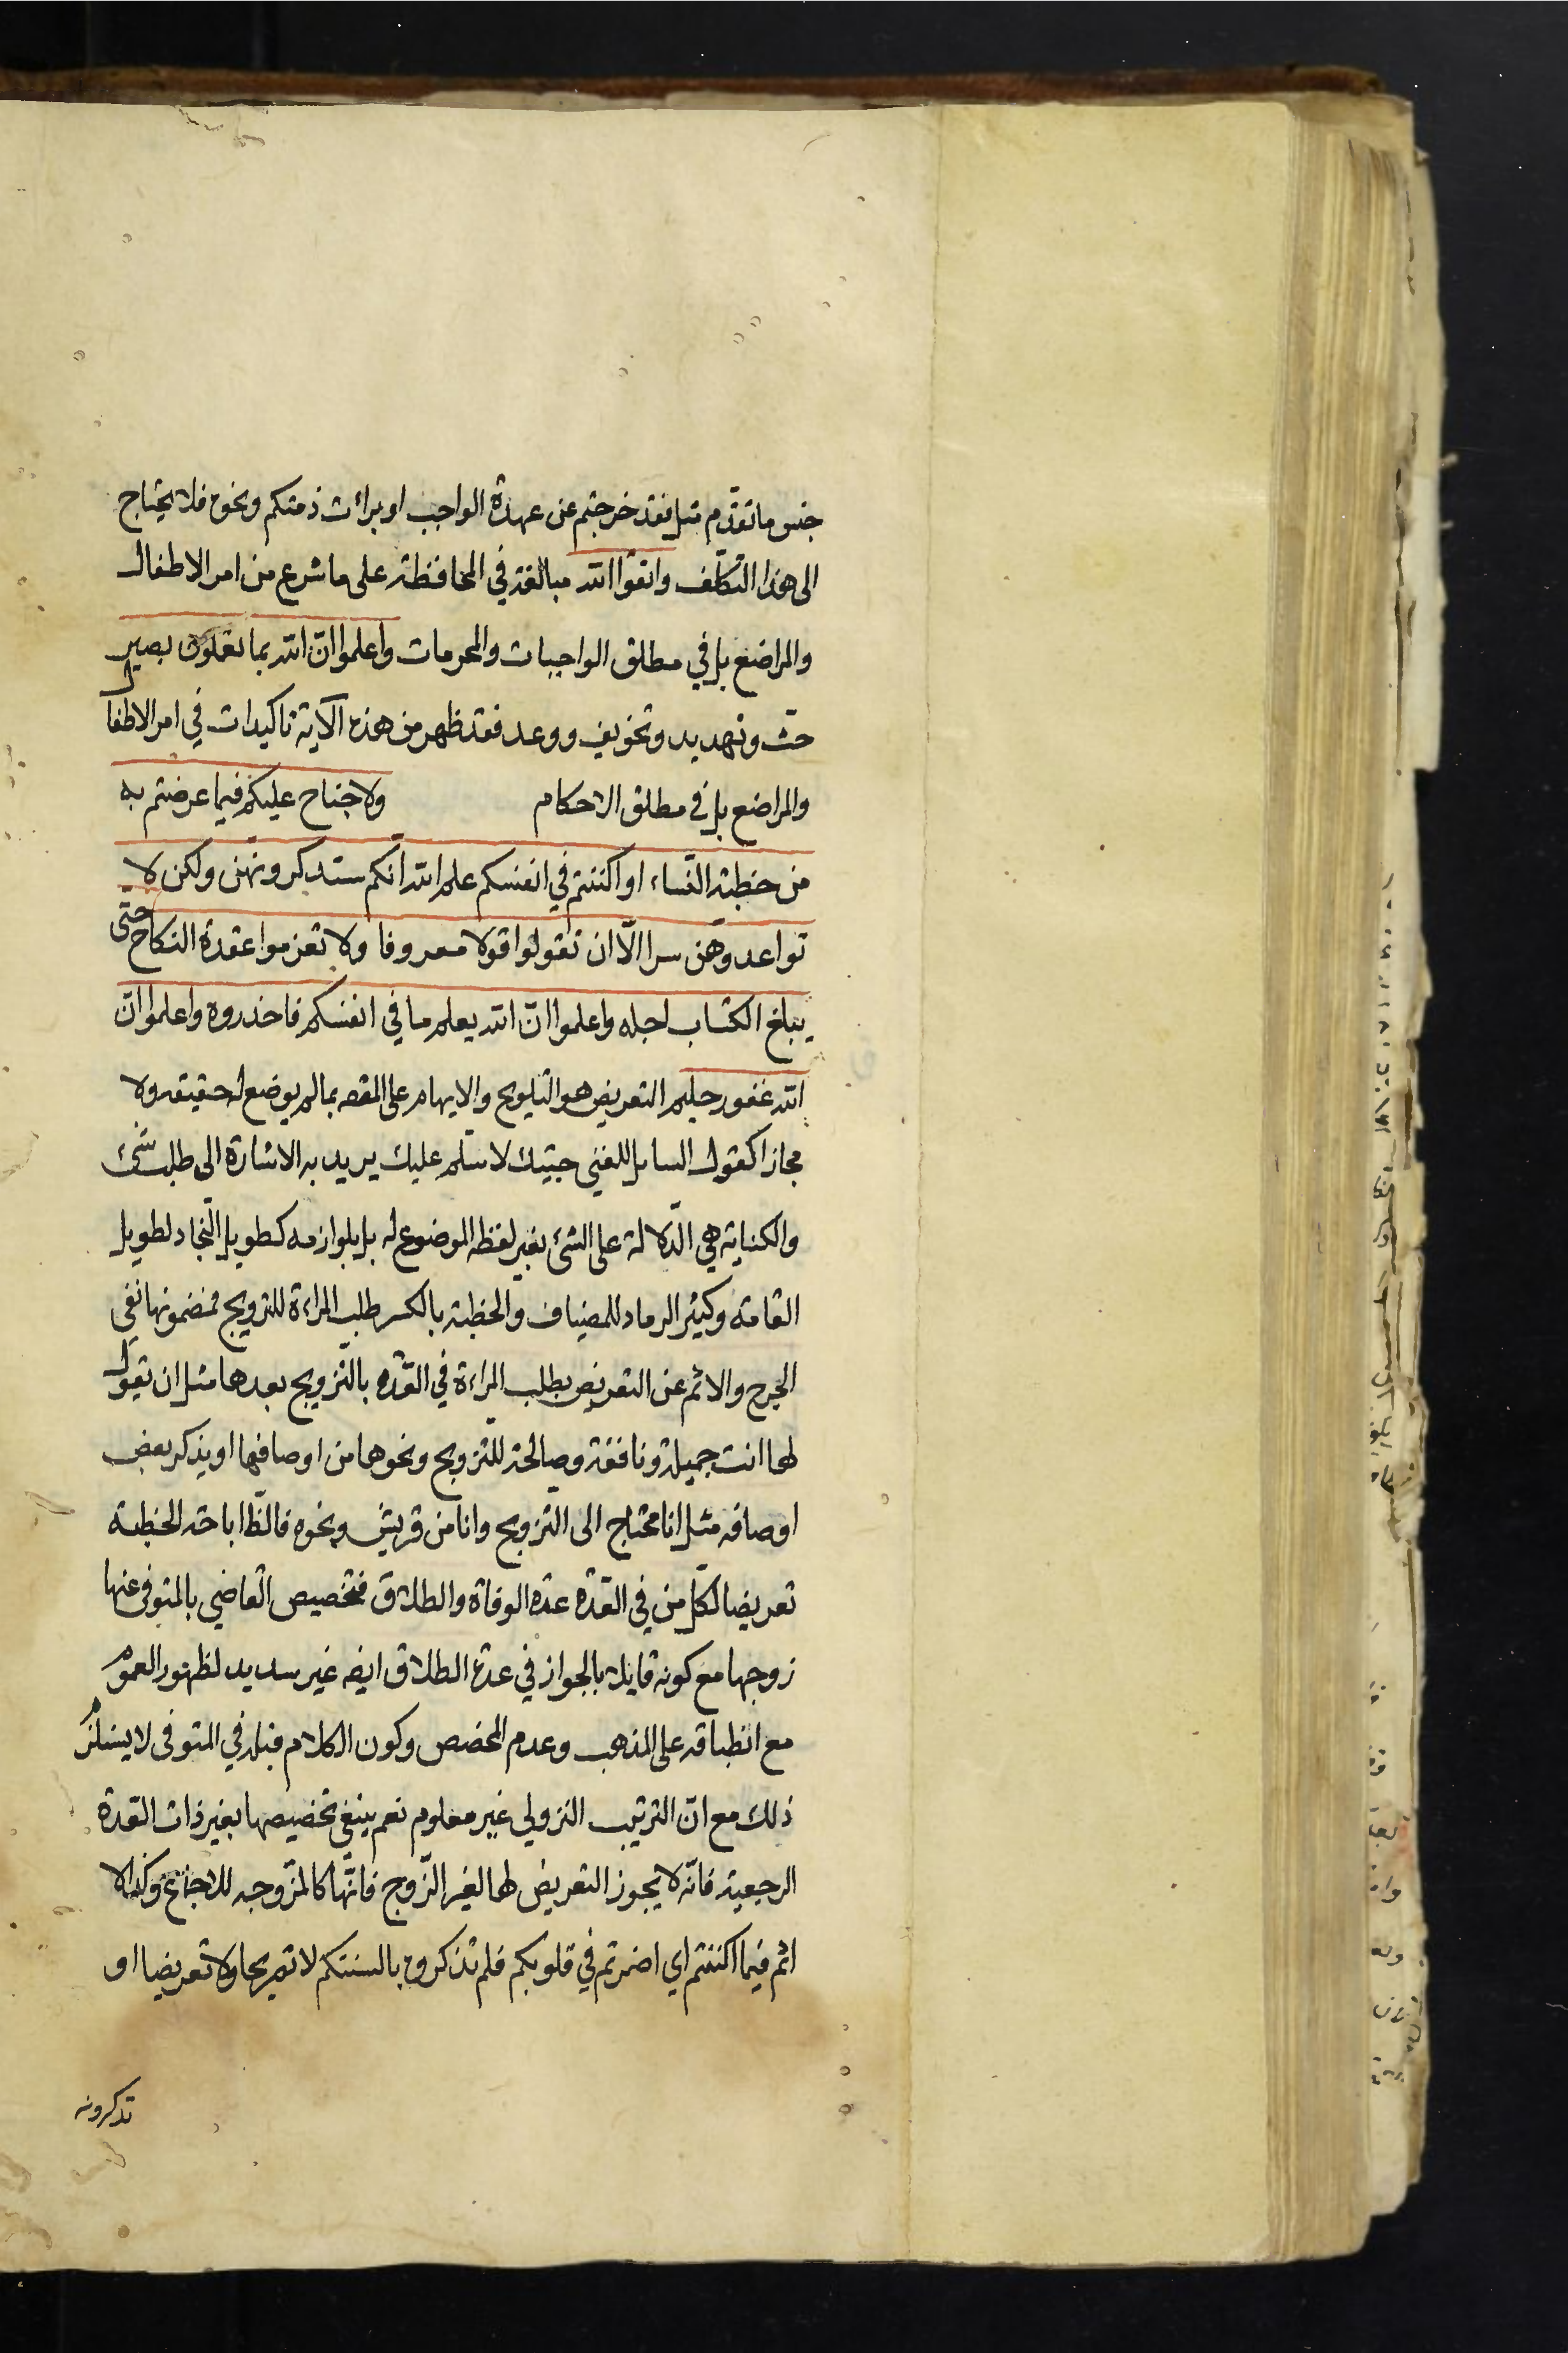 جنس ما تقدّم مثل فقد خرجتم عن عهدة الواجب او برائت ذمتكم ونحوه فلا يحتاج
الى هذا التكلّف واتقوا الله مبالغة في المحافظة على ما شرع من امر الاطفال
والمراضع بل في مطلق الواجبات والمحرمات واعلموا انّ الله بما تعملون بصير
حثّ وتهديد وتخويف ووعد فقد ظهر من هذه الآية تاكيدات في امر الاطفال
والمراضع بل في مطلق الاحكام ولا جناح عليكم فيما عرضتم به
من خطبة النّساء او اكننتم في انفسكم علم الله انّكم ستذكرونهنّ ولكن لا
تواعدوهنّ سرا الّا ان تقولوا قولا معروفا ولا تعزموا عقدة النكاح حتّى
يبلغ الكتاب اجله واعلموا انّ الله يعلم ما في انفسكم فاحذروه واعلموا انّ
الله غفور حليم التعريض هو التلويح والايهام على المقصد بما لم يوضع له حقيقة ولا
مجازا كقول السايل للغني جئتك لاسلّم عليك يريد به الاشارة الى طلب شئ
والكناية هي الدّلالة على الشئ بغير لفظه الموضوع له بل بلوازمه كطويل النّجاد لطويل
القامة وكثير الرماد للمضياف والخطبة بالكسر طلب المراءة للتزويج فمضمونها نفي
الحرج والاثم عن التعريض بطلب المراءة في العّدة بالتّزويج بعدها مثل ان تقول
لها انت جميلة ونافقة وصالحة للتّزويج ونحوها من اوصافها او يذكر بعض
اوصافه مثل انا محتاج الى التزويج وانا من قريش ونحوه فالظّا اباحة الخطبة
تعريضا لكلّ من في العّدة عدة الوفاة والطلاق فتخصيص القاضي بالمتوفى عنها
زوجها مع كونه قايلا بالجواز في عدة الطلاق ايضه غير سديد لظهور العموم
مع انطباقه على المذهب وعدم المخصص وكون الكلام قبله في المتوفى لا يستلزم
ذلك مع انّ الترتيب النزولي غير معلوم نعم ينبغي تخصيصها بغير ذات العّدة
الرجعية فانّه لا يجوز التعريض لها لغير الزّوج فانّها كالمزّوجه للاجماع وكذا لا
اثم فيما اكننتم اي اضمرتم في قلوبكم فلم تذكروه بالسنتكم لا تصريحا ولا تعريضا او
تذكرونه